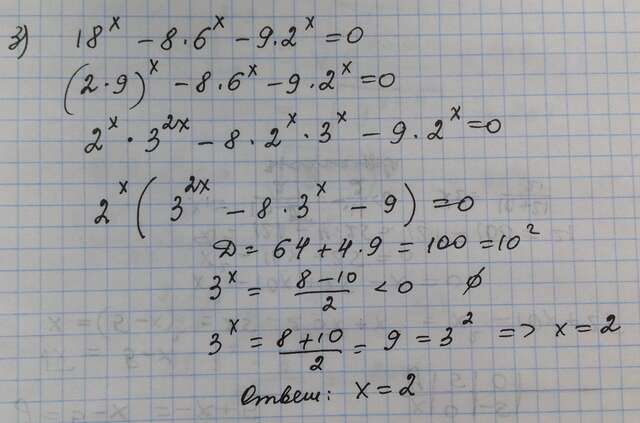 3) 18^x - 8·6^x - 9·2^x = 0
(2·9)^x - 8·6^x - 9·2^x = 0
2^x · 3^{2x} - 8·2^x·3^x - 9·2^x = 0
2^x ( 3^{2x} - 8·3^x - 9 ) = 0
D = 64 + 4·9 = 100 = 10^2
3^x = \frac{8-10}{2} < 0 ∅
3^x = \frac{8+10}{2} = 9 = 3^2 => x = 2
Ответ: x = 2